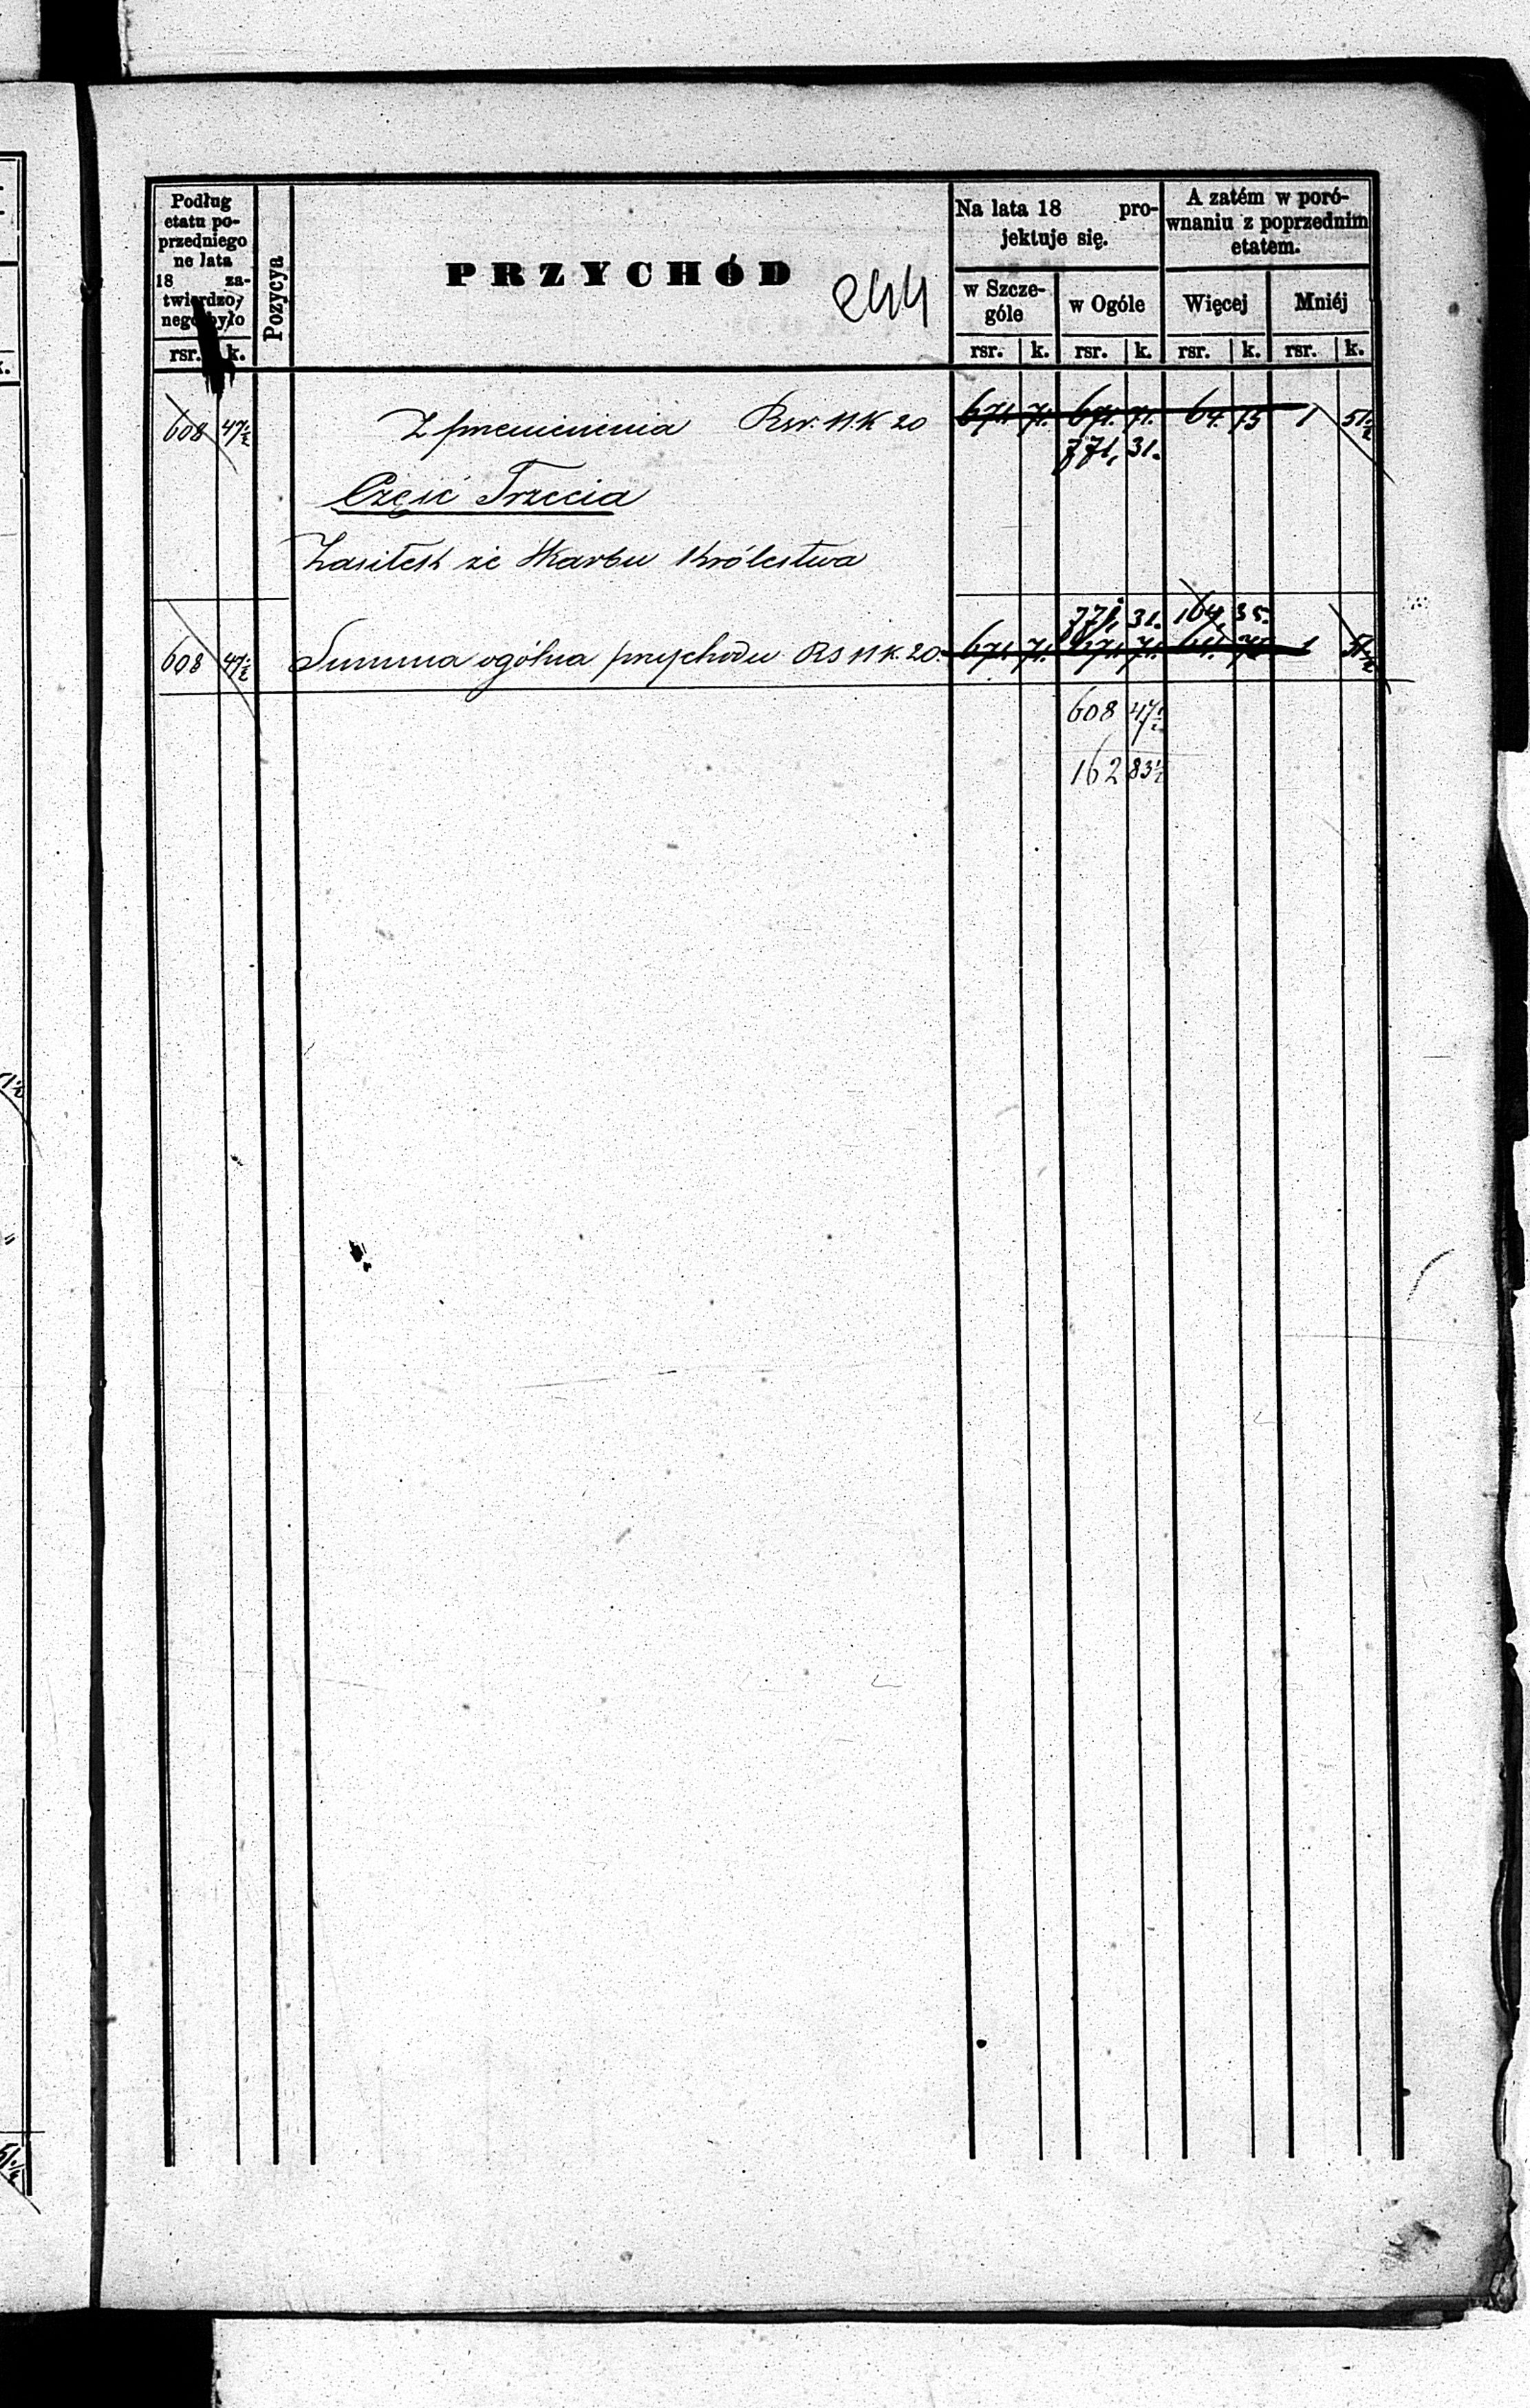 Podług
etatu po-
przedniego
ne lata
18 za-
twierdzo-
nego było
rsr. k.
Pozycya
PRZYCHÓD
244
Na lata 18 pro-
jektuje się.
w Szcze-
góle
w Ogóle
rsr. k. rsr. k.
A zatém w poró-
wnaniu z poprzednim
etatem.
Więcej Mniéj
rsr. k. rsr. k.
608 47½ Z przeniesienia Rsr. 11. K 20 671 71. 671. 71. 64. 75 1 51½
771, 31.
Część Trzecia
Zasiłek ze Skarbu Królestwa
771, 31. 164, 35.
608 47½ Summa ogólna przychodu RS 11 K. 20. 671 71. 671. 71. 64. 75 1 51½
608 47½
162 83½